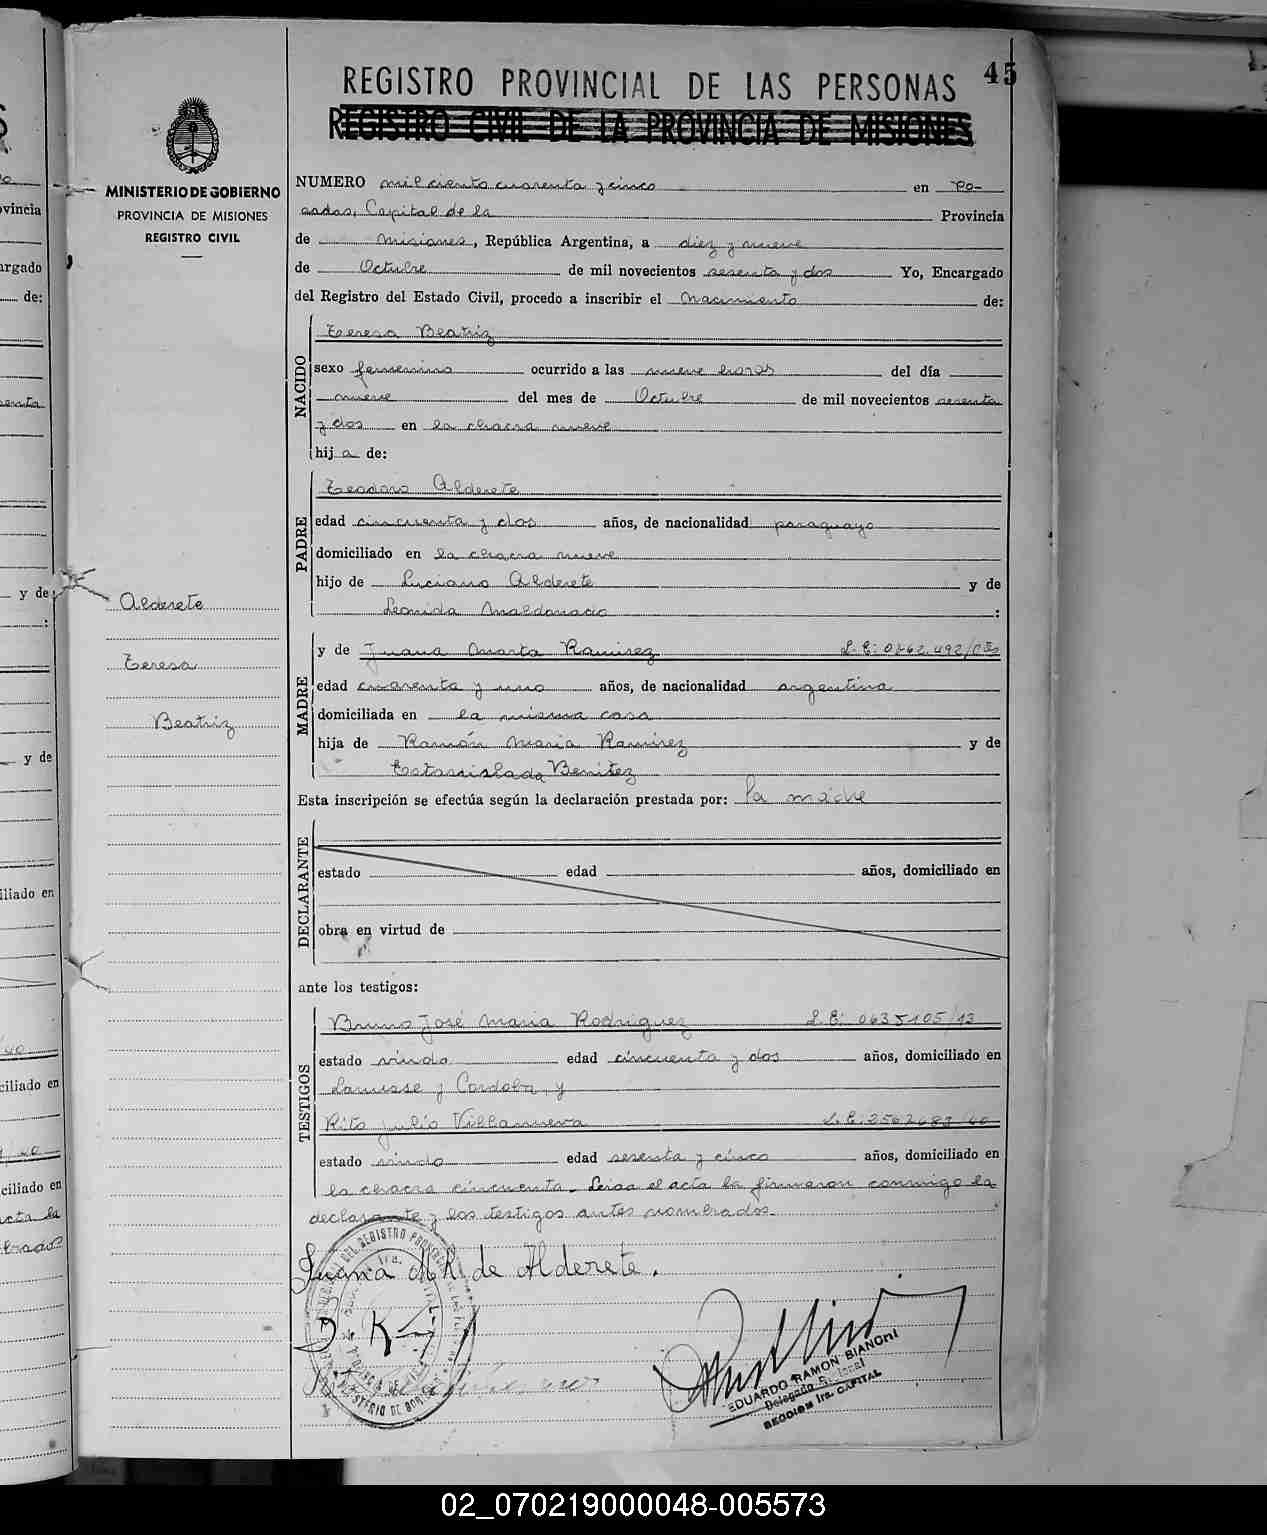 45
REGISTRO PROVINCIAL DE LAS PERSONAS
REGISTRO CIVIL DE LA PROVINCIA DE MISIONES
MINISTERIO DE GOBIERNO
PROVINCIA DE MISIONES
REGISTRO CIVIL
NUMERO mil ciento cuarenta y cinco en Po-
sadas, Capital de la Provincia
de Misiones, República Argentina, a diez y nueve
de Octubre de mil novecientos sesenta y dos Yo, Encargado
del Registro del Estado Civil, procedo a inscribir el Nacimiento de:
NACIDO
Teresa Beatriz
sexo femenino ocurrido a las nueve horas del día
nueve del mes de Octubre de mil novecientos sesenta
y dos en la chacra nueve
hij a de:
PADRE
Teodoro Alderete
edad cincuenta y dos años, de nacionalidad paraguayo
domiciliado en la chacra nueve
hijo de Luciano Alderete y de
Leonida Maldonado :
Alderete
Teresa
Beatriz
MADRE
y de Juana Marta Ramirez L. E:
edad cuarenta y uno años, de nacionalidad argentina
domiciliada en la misma casa
hija de Ramón Maria Ramirez y de
Estanislada Benitez
Esta inscripción se efectúa según la declaración prestada por: la madre
DECLARANTE
estado edad años, domiciliado en
obra en virtud de
ante los testigos:
TESTIGOS
Bruno José Maria Rodriguez L. E: 0635105/13
estado viudo edad cincuenta y dos años, domiciliado en
Lanusse y Cordoba, y
Rito Julio Villanueva L. E:
estado viudo edad sesenta y cinco años, domiciliado en
la chacra cincuenta. Leida el acta la firmaron conmigo la
declarante y los testigos antes nombrados.
Juana M R. de Alderete.
EDUARDO RAMON BIANCHI
Delegado Regional
SECCION 1ra. CAPITAL
02_070219000048-005573